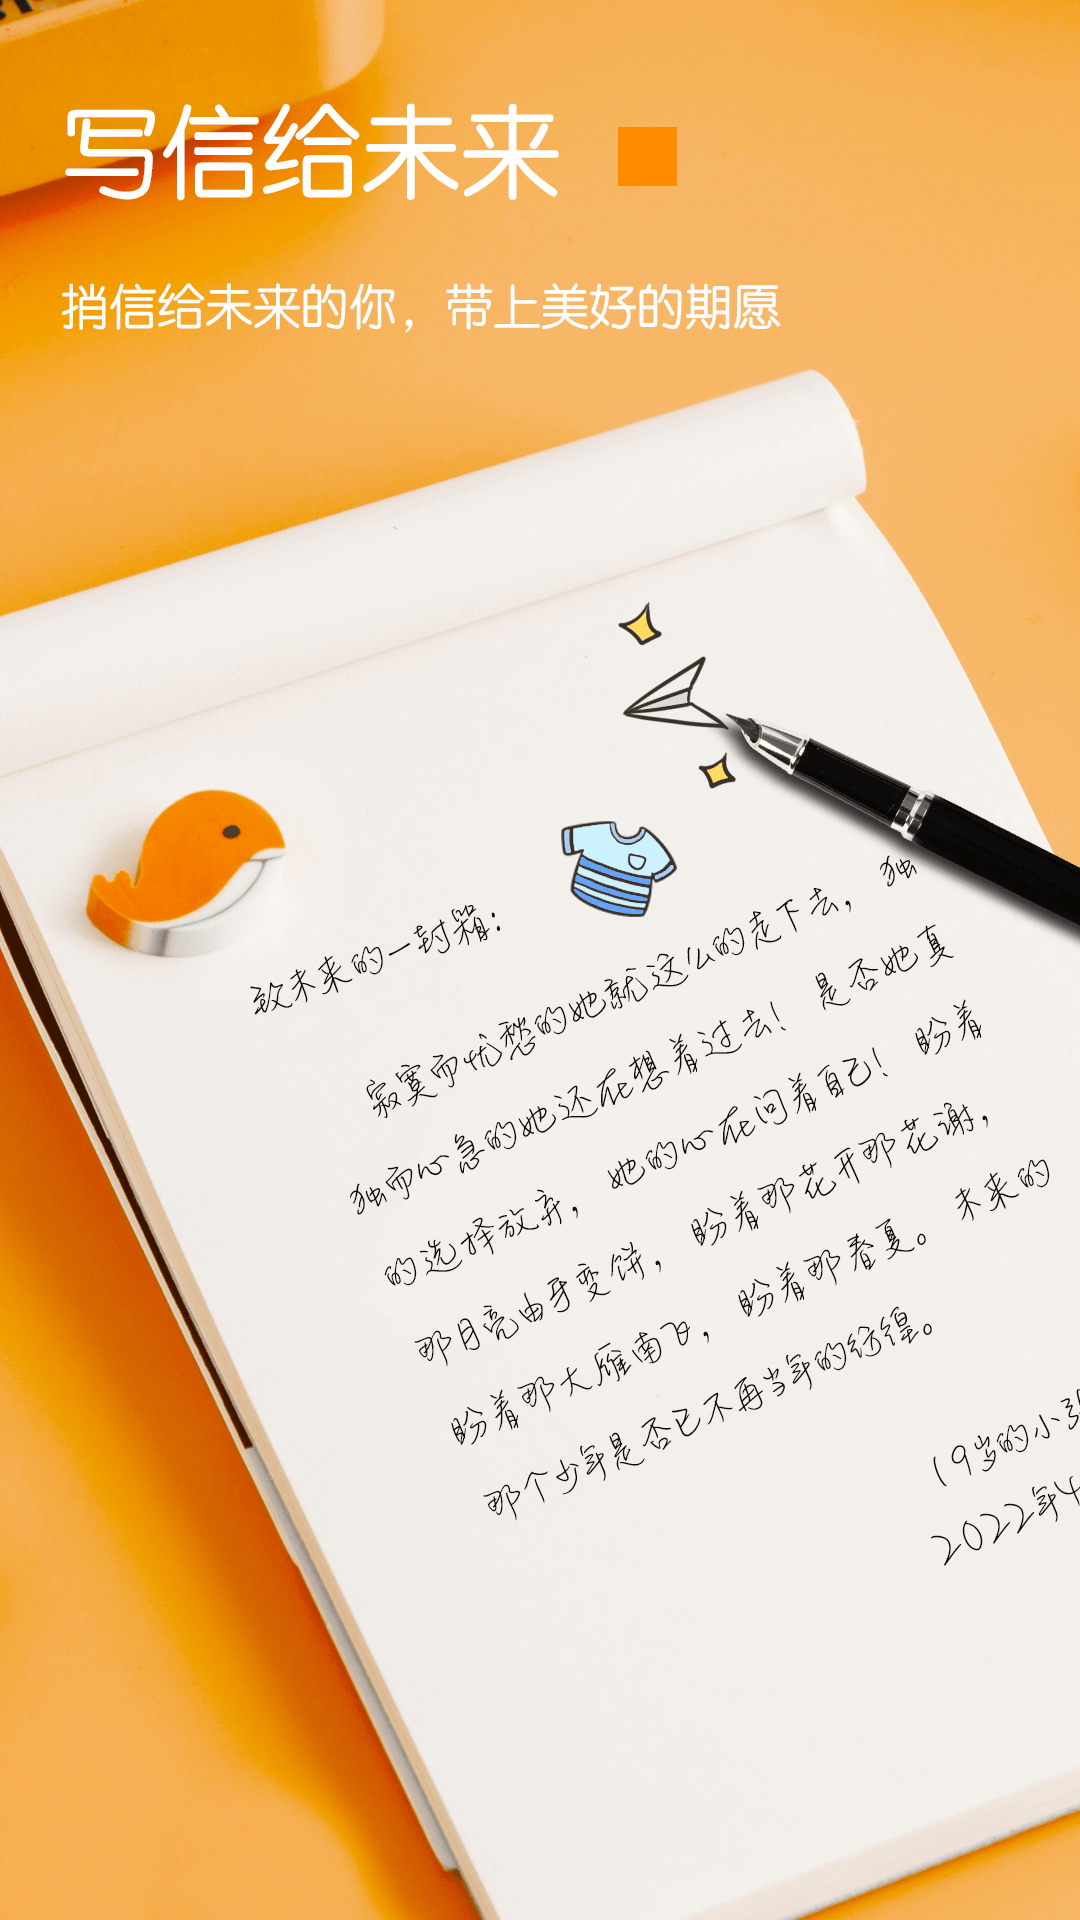 写信给未来
捎信给未来的你，带上美好的期愿
致未来的一封箱：
寂寞而忧愁的她就这么的走下去，独
独而心急的她还在想着过去！是否她真
的选择放弃，她的心在问着自己！盼着
那月亮由牙变饼，盼着那花开那花谢，
盼着那大雁南飞，盼着那春夏。未来的
那个少年是否已不再当年的纺徨。
19岁的小张
2022年4